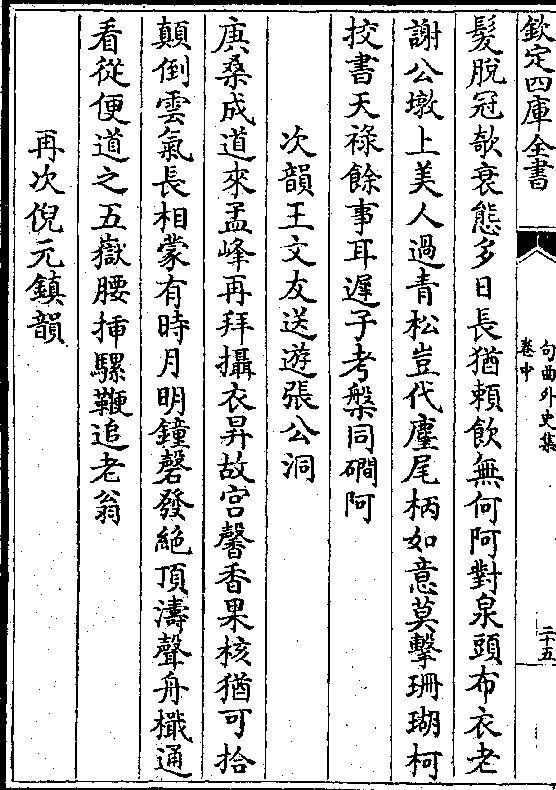 欽定四庫全書
句曲外史集
卷中
二十五
髮脫冠欹衰態多日長猶頼飲無何阿對泉頭布衣老
謝公墩上美人過青松豈代麈尾柄如意莫擊珊瑚柯
挍書天祿餘事耳遲子考槃同磵阿
次韻王文友送遊張公洞
庚桑成道來孟峰再拜攝衣昇故宫馨香果核猶可拾
顛倒雲氣長相蒙有時月明鐘磬發絶頂濤聲舟檝通
看從便道之五嶽腰揷騾鞭追老翁
再次倪元鎮韻